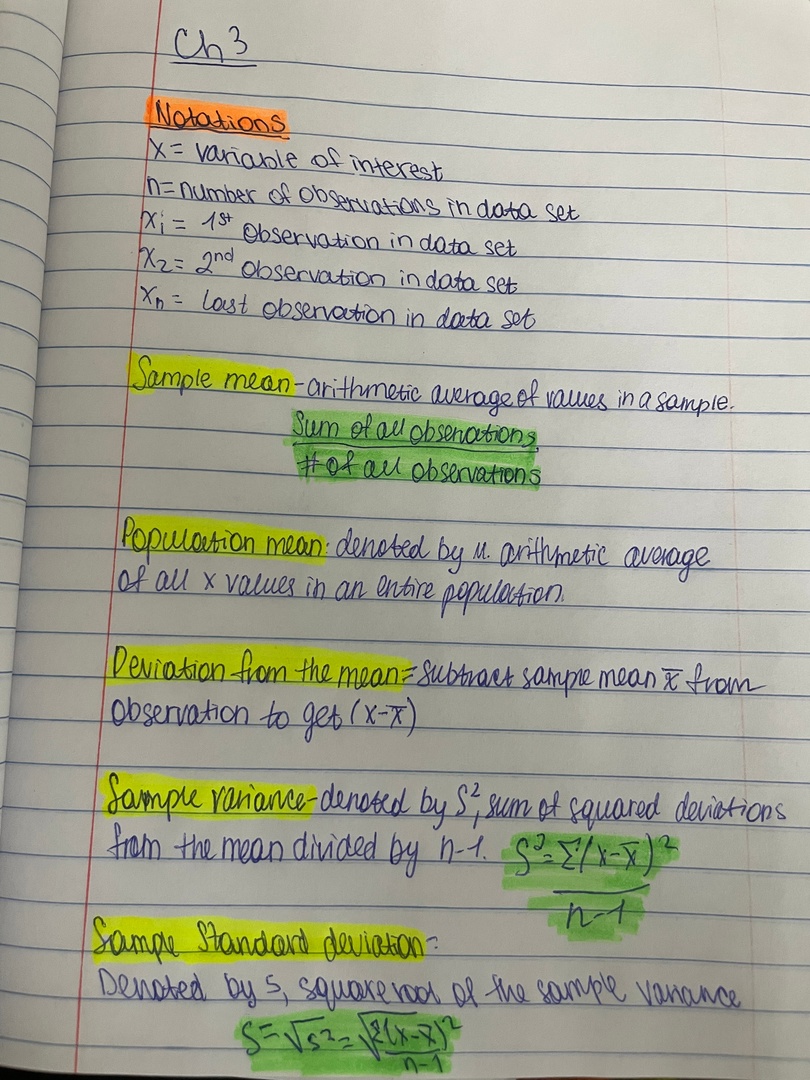 Ch 3
Notations
x = variable of interest
n = number of observations in data set
xi = 1st observation in data set
x2 = 2nd observation in data set
xn = last observation in data set
Sample mean - arithmetic average of values in a sample.
Sum of all observations
# of all observations
Population mean: denoted by μ. arithmetic average
of all x values in an entire population.
Deviation from the mean = subtract sample mean x̄ from
observation to get (x-x̄)
Sample variance - denoted by S², sum of squared deviations
from the mean divided by n-1. S² = Σ(x-x̄)²
n-1
Sample Standard deviation:
Denoted by S, square root of the sample variance
S = √s² = √Σ(x-x̄)²
n-1